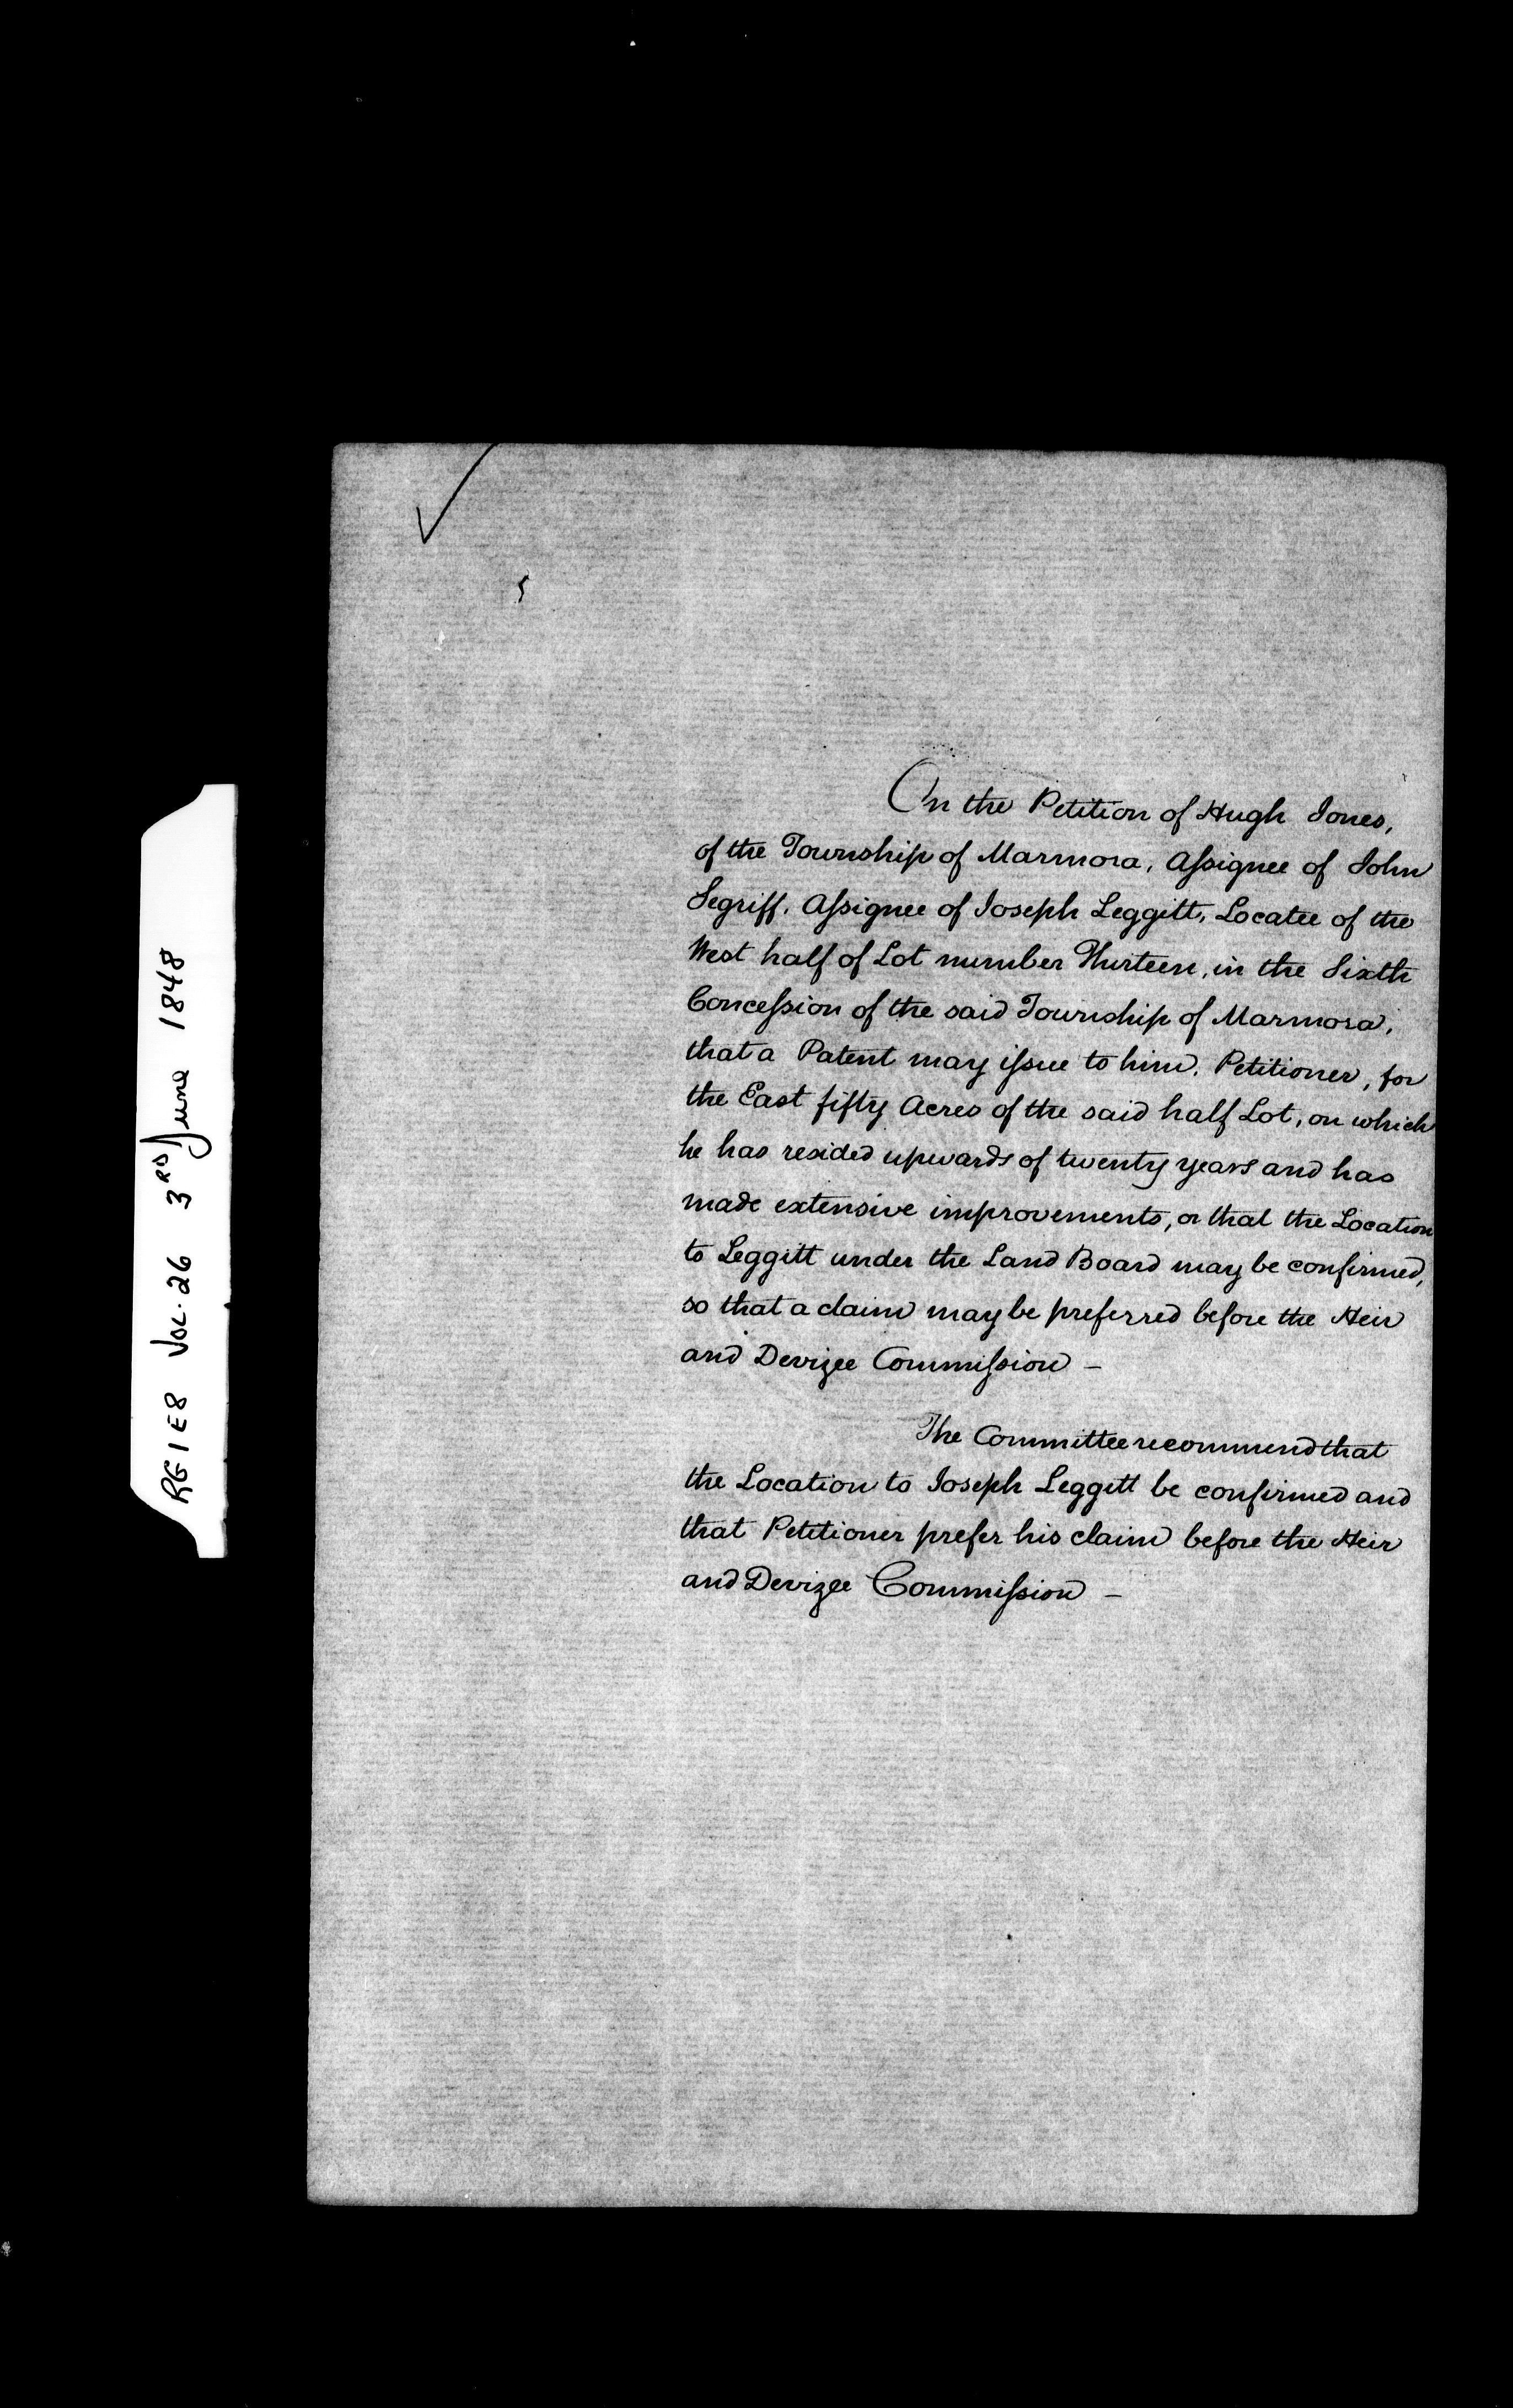 RG 1 E8 VOL. 26 3RD June 1848
On the Petition of Hugh Jones,
of the Township of Marmora, Assignee of John
Segriff, Assignee of Joseph Leggitt, Locatee of the
West half of Lot number Thirteen, in the Sixth
Concession of the said Township of Marmora,
that a Patent may issue to him, Petitioner, for
the East fifty Acres of the said half Lot, on which
he has resided upwards of twenty years and has
made extensive improvements, or that the Location
to Leggitt under the Land Board may be confirmed,
so that a claim may be preferred before the Heir
and Devizee Commission –
The Committee recommend that
the Location to Joseph Leggitt be confirmed and
that Petitioner prefer his claim before the Heir
and Devizee Commission –